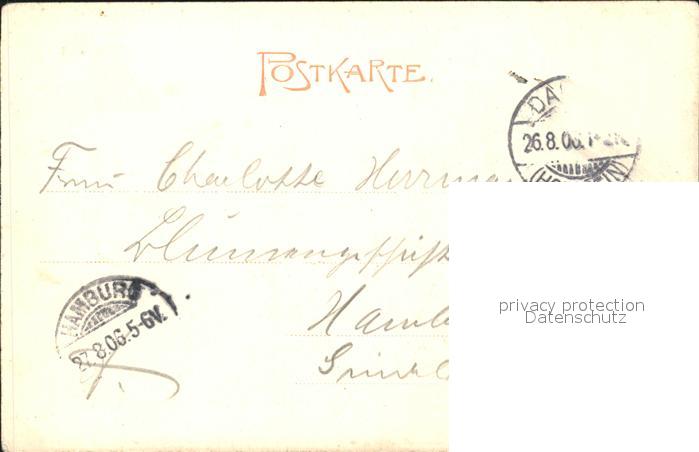 POSTKARTE.
26.8.06.
Frau Charlotte Herrma
Blumengeschäft
HAMBURG
27.8.06.5-6V.
Hamb
privacy protection
Datenschutz